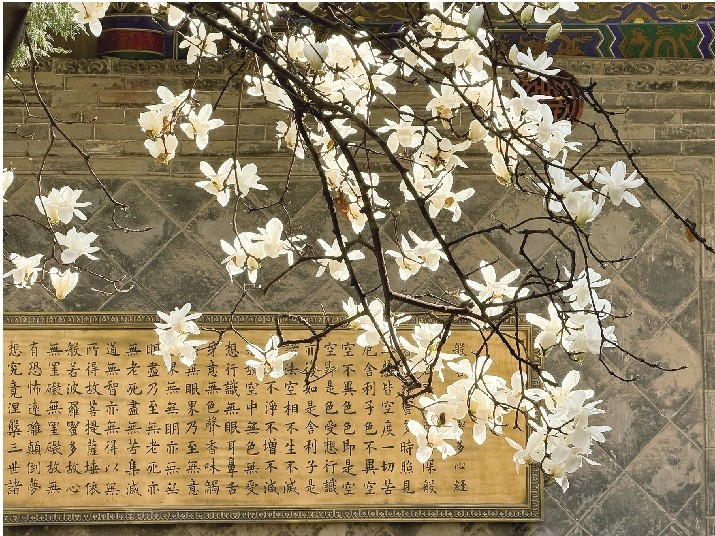 般多心經
深般
時照見
皆空度一切苦
厄舍利子色不異空
空不異色色即是空
空即是色受想行識
如是舍利子是
法空相不生不滅
不淨不增不減
空中無色無受
想行識無眼耳鼻舌
身意無色聲香味觸
無眼界乃至無意
無無明亦無無
明盡乃至無老死亦
無老死盡無苦集滅
道無智亦無得以無
所得故菩提薩埵依
般若波羅蜜多故心
無罣礙無罣礙故無
有恐怖遠離顛倒夢
想究竟涅槃三世諸